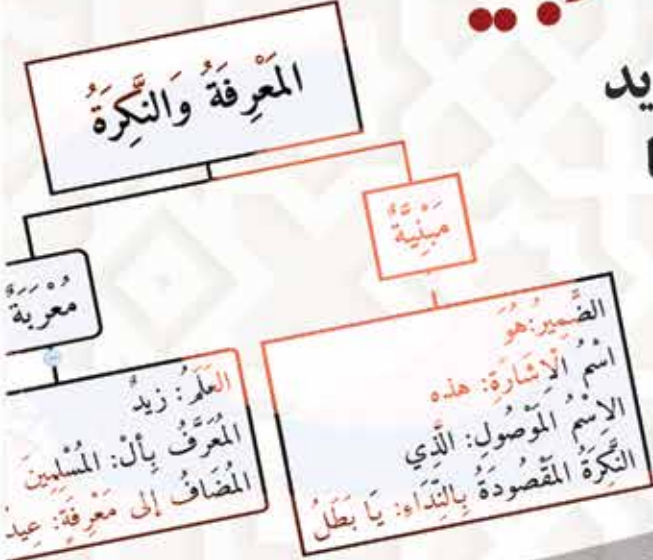 المَعْرِفَةُ وَالنَّكِرَةُ
مَبْنِيَّةٌ
الضَّمِيرُ: هُوَ
اسْمُ الْإِشَارَةِ: هذه
الاِسْمُ المَوْصُولِ: الَّذِي
النَّكِرَةُ المَقْصُودَةُ بِالنِّدَاءِ: يَا بَطَلُ
مُعْرَبَةٌ
العَلَمُ: زيدٌ
المُعَرَّفُ بِأَلْ: المُسْلِمِينَ
المُضَافُ إلى مَعْرِفَةٍ: عِيدُ